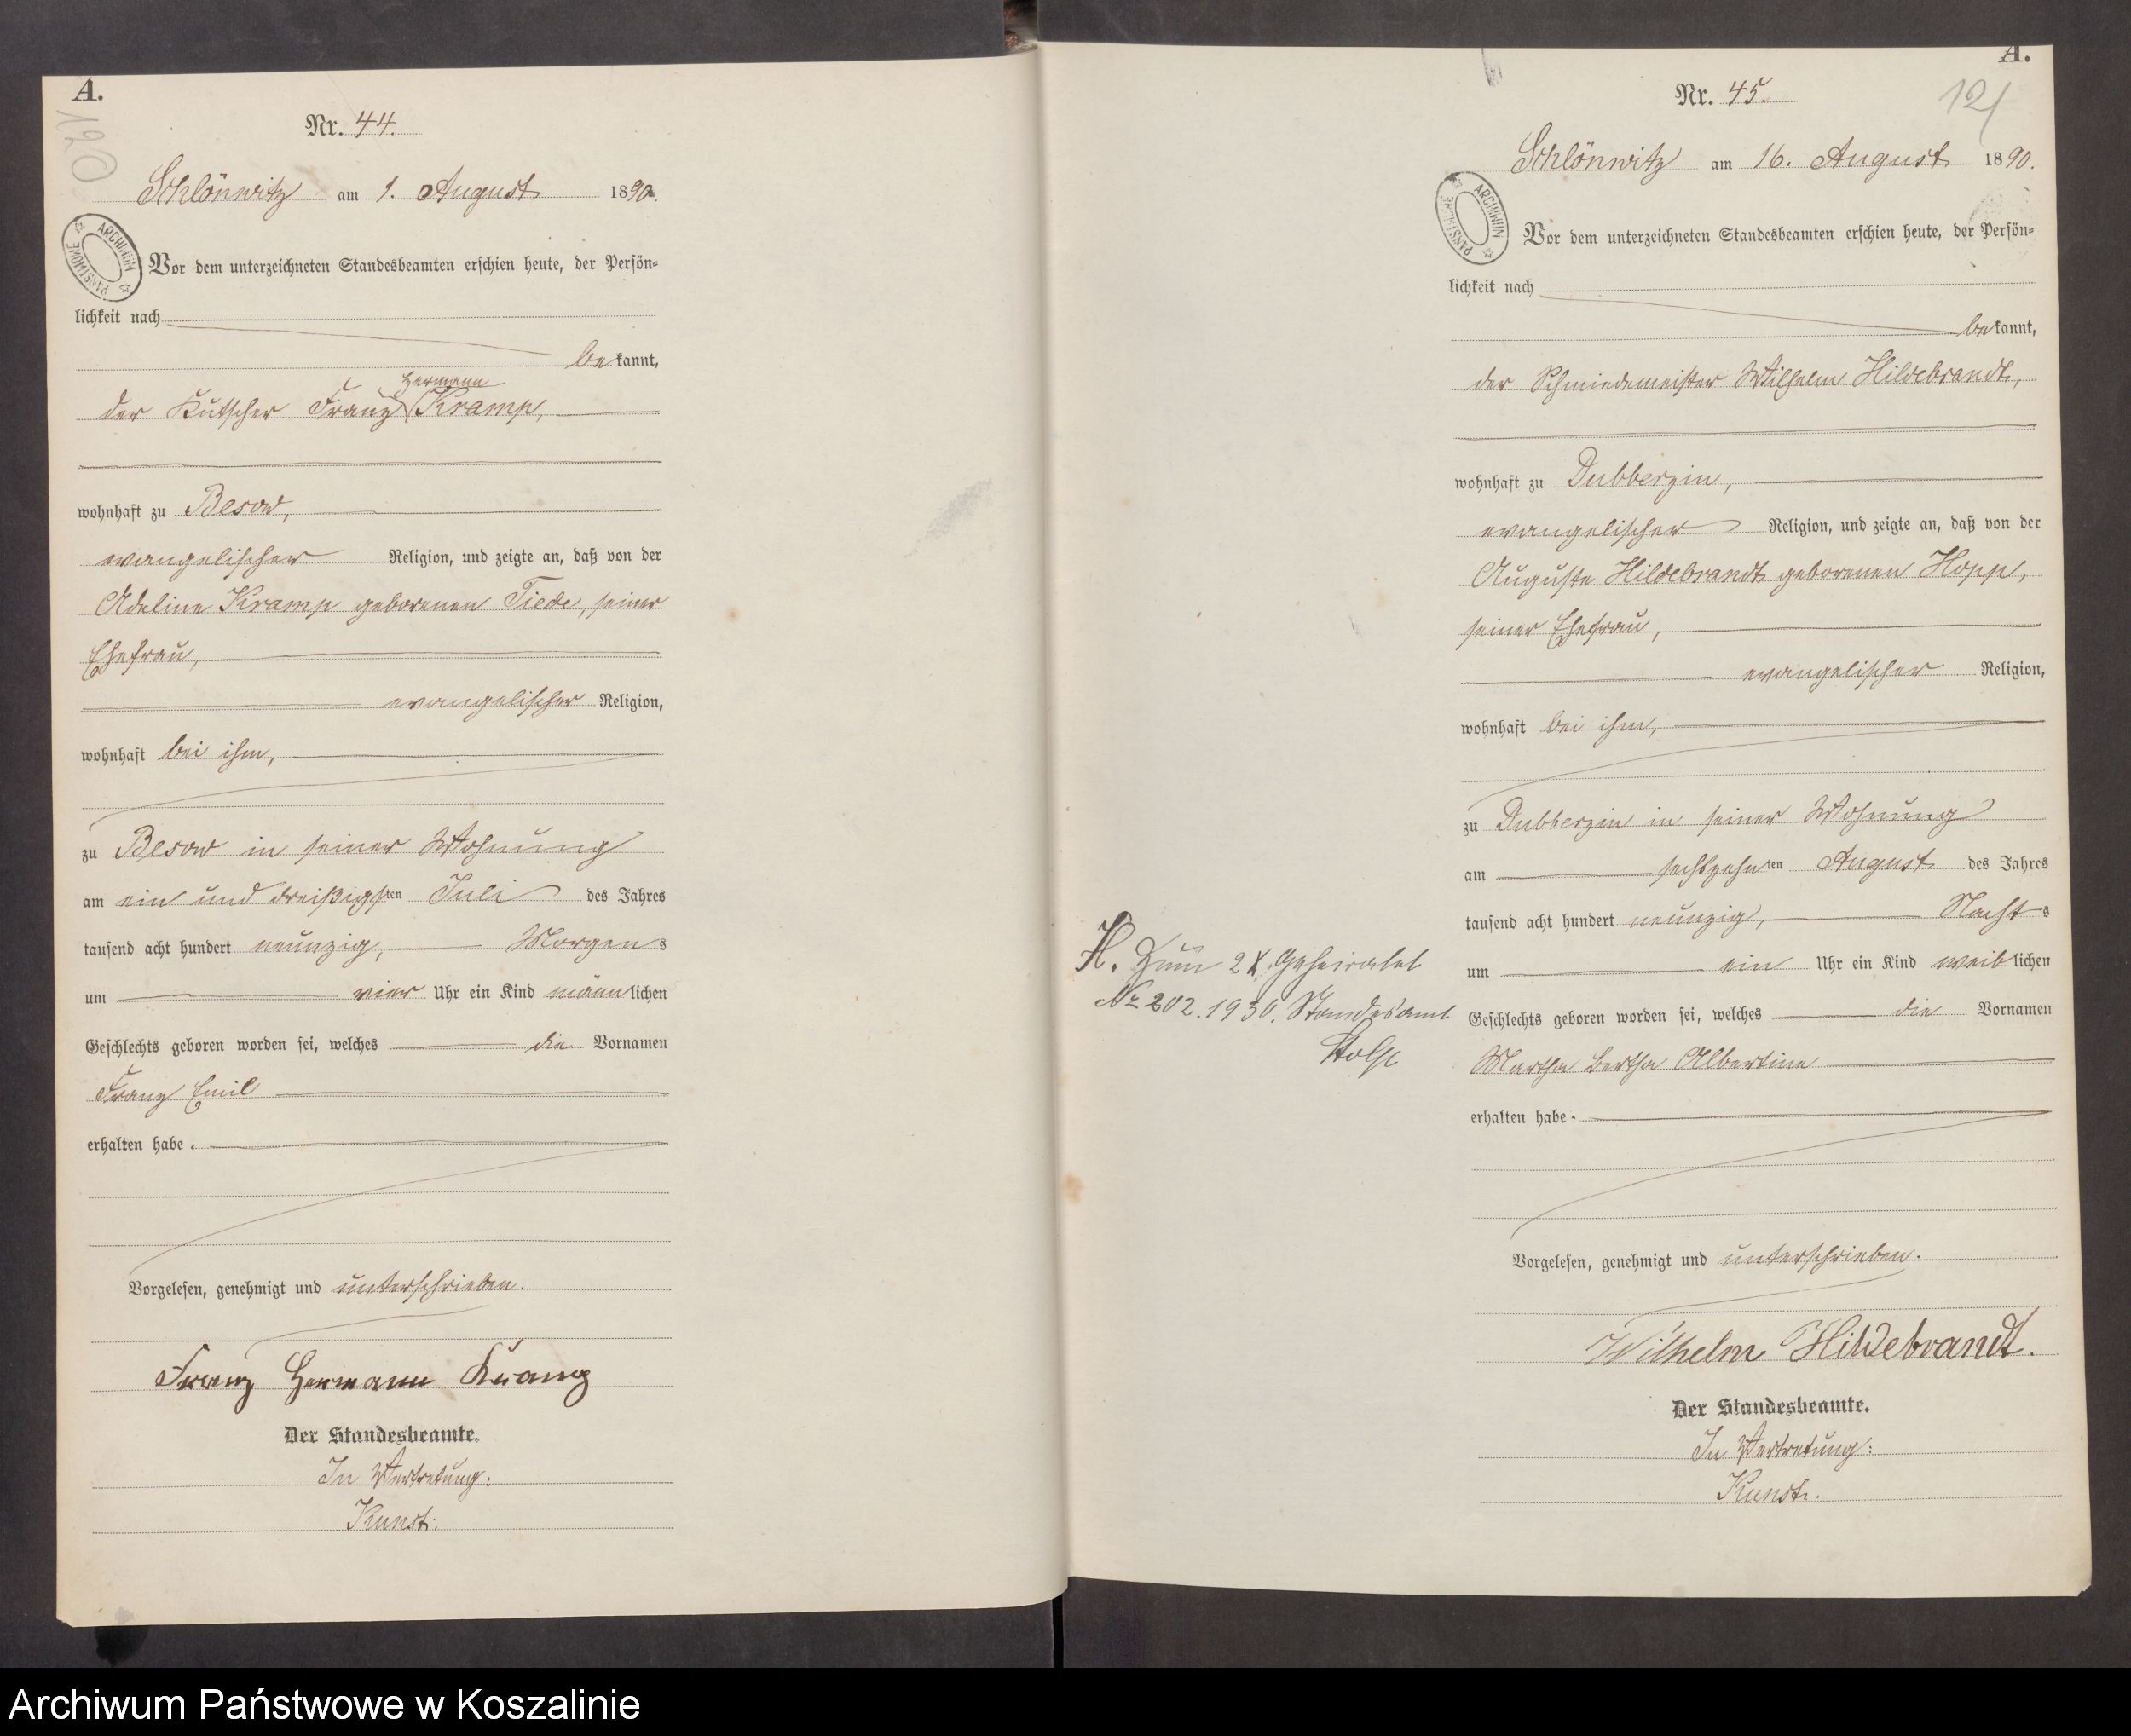 A.
120
Nr. 44.
Schlönwitz am 1. August 1890.
ARCHIWUM PAŃSTWOWE
Vor dem unterzeichneten Standesbeamten erschien heute, der Persön=
lichkeit nach
bekannt,
Hermann
der Kutscher Franz Kramp,
wohnhaft zu Besow,
evangelischer Religion, und zeigte an, daß von der
Adeline Kramp geborenen Tiede, seiner
Ehefrau,
evangelischer Religion,
wohnhaft bei ihm,
zu Besow in seiner Wohnung
am ein und dreißigsten Juli des Jahres
tausend acht hundert neunzig, Morgens
um vier Uhr ein Kind männlichen
Geschlechts geboren worden sei, welches die Vornamen
Franz Emil
erhalten habe.
Vorgelesen, genehmigt und unterschrieben.
Franz Hermann Kramp
Der Standesbeamte.
In Vertretung:
Kunst.
A.
121
Nr. 45.
Schlönwitz am 16. August 1890.
ARCHIWUM PAŃSTWOWE
Vor dem unterzeichneten Standesbeamten erschien heute, der Persön=
lichkeit nach
bekannt,
der Schmiedemeister Wilhelm Hildebrandt,
wohnhaft zu Dubberzin,
evangelischer Religion, und zeigte an, daß von der
Auguste Hildebrandt geborenen Hopp,
seiner Ehefrau,
evangelischer Religion,
wohnhaft bei ihm,
zu Dubberzin in seiner Wohnung
am sechszehnten August des Jahres
tausend acht hundert neunzig, Nachts
um ein Uhr ein Kind weiblichen
Geschlechts geboren worden sei, welches die Vornamen
Martha Bertha Albertine
erhalten habe.
Vorgelesen, genehmigt und unterschrieben.
Wilhelm Hildebrandt.
Der Standesbeamte.
In Vertretung:
Kunst.
H. Zum 2 X geheiratet
No 202. 1930. Standesamt
Stolp
Archiwum Państwowe w Koszalinie